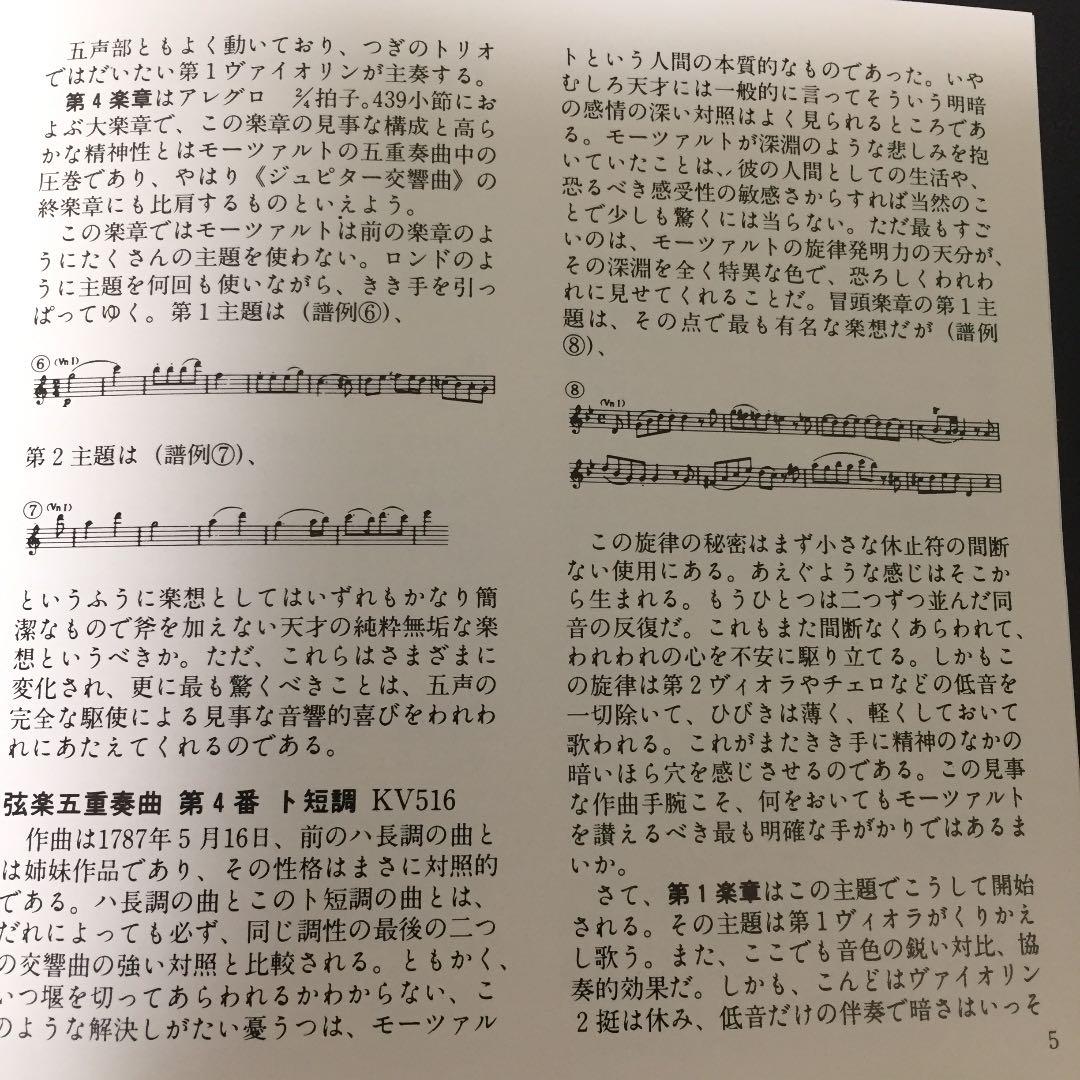 五声部ともよく動いており、つぎのトリオ
ではだいたい第1ヴァイオリンが主奏する。
第4楽章はアレグロ 2/4拍子。439小節にお
よぶ大楽章で、この楽章の見事な構成と高ら
かな精神性とはモーツァルトの五重奏曲中の
圧巻であり、やはり《ジュピター交響曲》の
終楽章にも比肩するものといえよう。
この楽章ではモーツァルトは前の楽章のよ
うにたくさんの主題を使わない。ロンドのよ
うに主題を何回も使いながら、きき手を引っ
ぱってゆく。第1主題は（譜例⑥）、
⑥ (Vn I)
p
第2主題は（譜例⑦）、
⑦ (Vn I)
というふうに楽想としてはいずれもかなり簡
潔なもので斧を加えない天才の純粋無垢な楽
想というべきか。ただ、これらはさまざまに
変化され、更に最も驚くべきことは、五声の
完全な駆使による見事な音響的喜びをわれわ
れにあたえてくれるのである。
弦楽五重奏曲 第4番 ト短調 KV516
作曲は1787年5月16日、前のハ長調の曲と
は姉妹作品であり、その性格はまさに対照的
である。ハ長調の曲とこのト短調の曲とは、
だれによっても必ず、同じ調性の最後の二つ
の交響曲の強い対照と比較される。ともかく、
いつ堰を切ってあらわれるかわからない、こ
のような解決しがたい憂うつは、モーツァル
トという人間の本質的なものであった。いや
むしろ天才には一般的に言ってそういう明暗
の感情の深い対照はよく見られるところであ
る。モーツァルトが深淵のような悲しみを抱
いていたことは、彼の人間としての生活や、
恐るべき感受性の敏感さからすれば当然のこ
とで少しも驚くには当らない。ただ最もすご
いのは、モーツァルトの旋律発明力の天分が、
その深淵を全く特異な色で、恐ろしくわれわ
れに見せてくれることだ。冒頭楽章の第1主
題は、その点で最も有名な楽想だが（譜例
⑧）、
⑧
(Vn I)
この旋律の秘密はまず小さな休止符の間断
ない使用にある。あえぐような感じはそこか
ら生まれる。もうひとつは二つずつ並んだ同
音の反復だ。これもまた間断なくあらわれて、
われわれの心を不安に駆り立てる。しかもこ
の旋律は第2ヴィオラやチェロなどの低音を
一切除いて、ひびきは薄く、軽くしておいて
歌われる。これがまたきき手に精神のなかの
暗いほら穴を感じさせるのである。この見事
な作曲手腕こそ、何をおいてもモーツァルト
を讃えるべき最も明確な手がかりではあるま
いか。
さて、第1楽章はこの主題でこうして開始
される。その主題は第1ヴィオラがくりかえ
し歌う。また、ここでも音色の鋭い対比、協
奏的効果だ。しかも、こんどはヴァイオリン
2挺は休み、低音だけの伴奏で暗さはいっそ
5